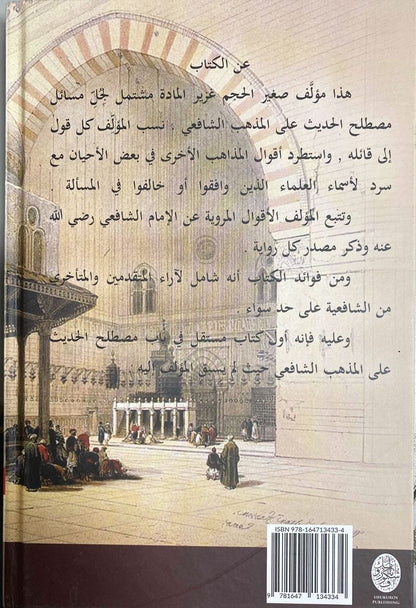 عن الكتاب
هذا مؤلَّف صغير الحجم غزير المادة مشتمل لجُلّ مسائل
مصطلح الحديث على المذهب الشافعي , نسب المؤلف كل قول
إلى قائله , واستطرد أقوال المذاهب الأخرى في بعض الأحيان مع
سرد لأسماء العلماء الذين وافقوا أو خالفوا في المسألة .
وتتبع المؤلف الأقوال المروية عن الإمام الشافعي رضي الله
عنه وذكر مصدر كل رواية .
ومن فوائد الكتاب أنه شامل لآراء المتقدمين والمتأخرى
من الشافعية على حد سواء .
وعليه فإنه أول كتاب مستقل في باب مصطلح الحديث
على المذهب الشافعي حيث لم يسبق المؤلف إليه .
ISBN 978-164713433-4
9 781647 134334
SHUKUROV
PUBLISHING